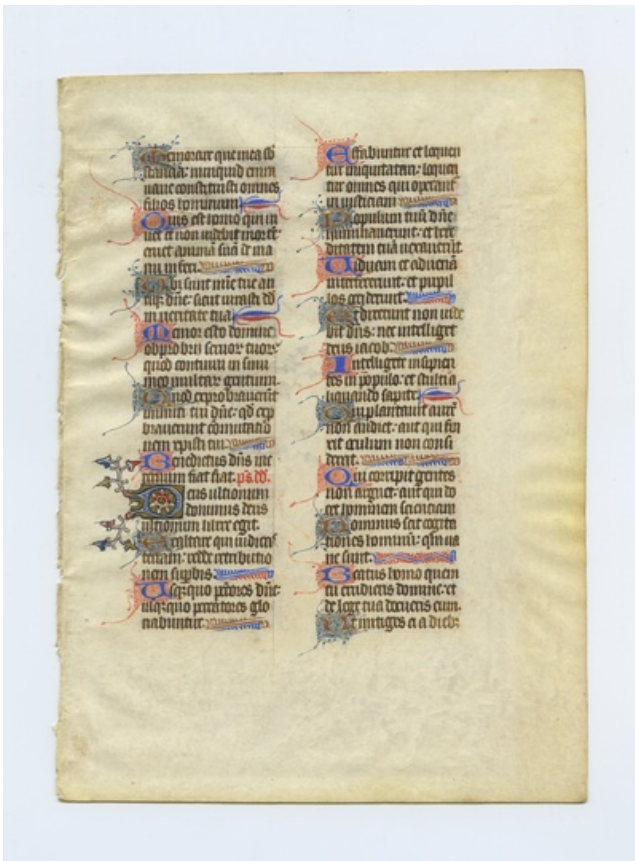 Memorare que mea sb
stantia: nunquid enim
uane constituisti omnes
filios hominum
Quis est homo qui ui
uet et non videbit morte:
eruet animā suā de ma
nu inferi.
Ubi sunt mīe tue an
tiq̄ dn̄e: sicut iurasti dd̄
in ueritate tua
Memor esto domine
obprobrii seruor tuor:
quod continui in sinu
meo multar gentium.
Quod exprobrauerūt
inimici tui dn̄e: qd̄ exp
brauerunt comutatiōē
nem xpisti tui.
Benedictus dn̄s ine
ternum fiat fiat. ps. dd̄.
Deus ultionum
dominus deus
ultionum libere egit.
Exaltare qui iudicas
terram: redde retributio
nem supbis.
Usquequo pctōres dn̄e:
usq̄quo peccatores glo
riabuntur.
Effabuntur et loquen
tur iniquitatem: loquen
tur omnes qui operant̄
iniusticiam
Populum tuū dn̄e
humiliauerunt: et here
ditatem tuā uexauerūt.
Uiduam et aduenā
interfecerunt: et pupil
los occiderunt.
Et dixerunt non uide
bit dn̄s: nec intelliget
deus iacob.
Intelligite insipien
tes in populo: et stulti a
liquando sapite.
Qui plantauit aurē
non audiet: aut qui fin
xit oculum non consi
derat.
Qui corripit gentes
non arguet: aut qui do
cet hominem scientiam
Dominus scit cogita
tiones hominū: qm̄ ua
ne sunt.
Beatus homo quem
tu erudieris domine: et
de lege tua docueris eum.
Ut mitiges ei a dieb: